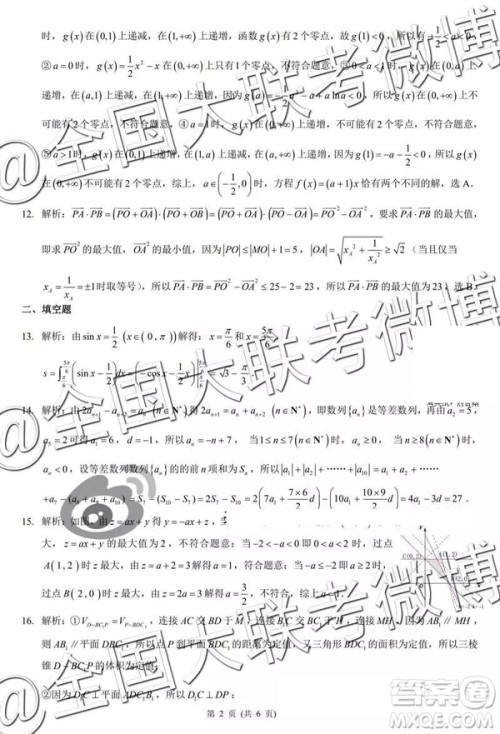 时，g(x)在(0,1)上递减，在(1,+∞)上递增，函数g(x)有2个零点，故g(1)<0，所以有
②a=0时，g(x)=1/2x²-x在(0,+∞)上只有1个零点，不符合题意，③0<a<1时，g(x)在(0,a)上
递增，在(a,1)上递减，在(1,+∞)上递增，因为
可能有2个零点，不符合题意，④a=1时，g(x)在(0,+∞)上递增，不可能有2个零点，不符合题意，
⑤a>1时，g(x)在(0,1)上递增，在(1,a)上递减，在(a,+∞)上递增，因为g(1)=-a-1/2<0，所以g(x)
在(0,+∞)不可能有2个零点，综上，a∈(-1/2,0)时，方程f(x)=(a+1)x恰有两个不同的解，选A．
12. 解析：PA·PB=(PO+OA)·(PO+OB)=(PO+OA)·(PO-OA)=PO²-OA²，要求PA·PB的最大值，
即求PO²的最大值，OA²的最小值，因为|PO|≤|MO|+1=5，|OA|=√(x_A²+1/x_A²)≥√2（当且仅当
x_A=1/x_A=±1时取等号），所以PA·PB=PO²-OA²≤25-2=23，所以PA·PB的最大值为23，选B．
二、填空题
13. 解析：由sin x=1/2 (x∈(0,π))解得：x=π/6和x=5π/6
14. 解析：由2a_{n+1}-a_n=a_{n+2}(n∈N*)得2a_{n+1}=a_n+a_{n+2}(n∈N*)，即数列{a_n}是等差数列，再由a₂=5，
a₅=2可得a₁=6，d=-1，所以a_n=-n+7，当1≤n≤7(n∈N*)时，a_n≥0，当n≥8(n∈N*)时，
a_n<0，设等差数列数列{a_n}的的前n项和为S_n，所以|a₁|+|a₂|+……+|a₁₀|=a₁+a₂+……
+a₇-(a₈+a₉+a₁₀)=S₇-(S₁₀-S₇)=2S₇-S₁₀=2[7a₁+(7×6/2)d]-[10a₁+(10×9/2)d]=27．
15. 解析：如图，由z=ax+y得y=-ax+z，
大，z=ax+y的最大值为2，不符合题意；当-2<-a<0即0<a<2时，过点
A(1,2)时z最大，由z=a+2=3解得a=1，符合题意；
时z最大，由z=2a=3解得a=3/2，不符合题意．
16. 解析：①V_{D-BC₁P}=V_{P-BDC₁}，连接AC交BD于M，连接
则AB₁∥平面DBC₁，所以点P到平面DBC₁的距离为定值，又三角形DBC₁的面积为定值，所以三棱
锥D-BC₁P的体积为定值；
②因为D₁C⊥平面ADC₁B₁，所以D₁C⊥DP；
第 2 页 (共 6 页)
@全国大联考微博
@全国大联考微博
答案圈